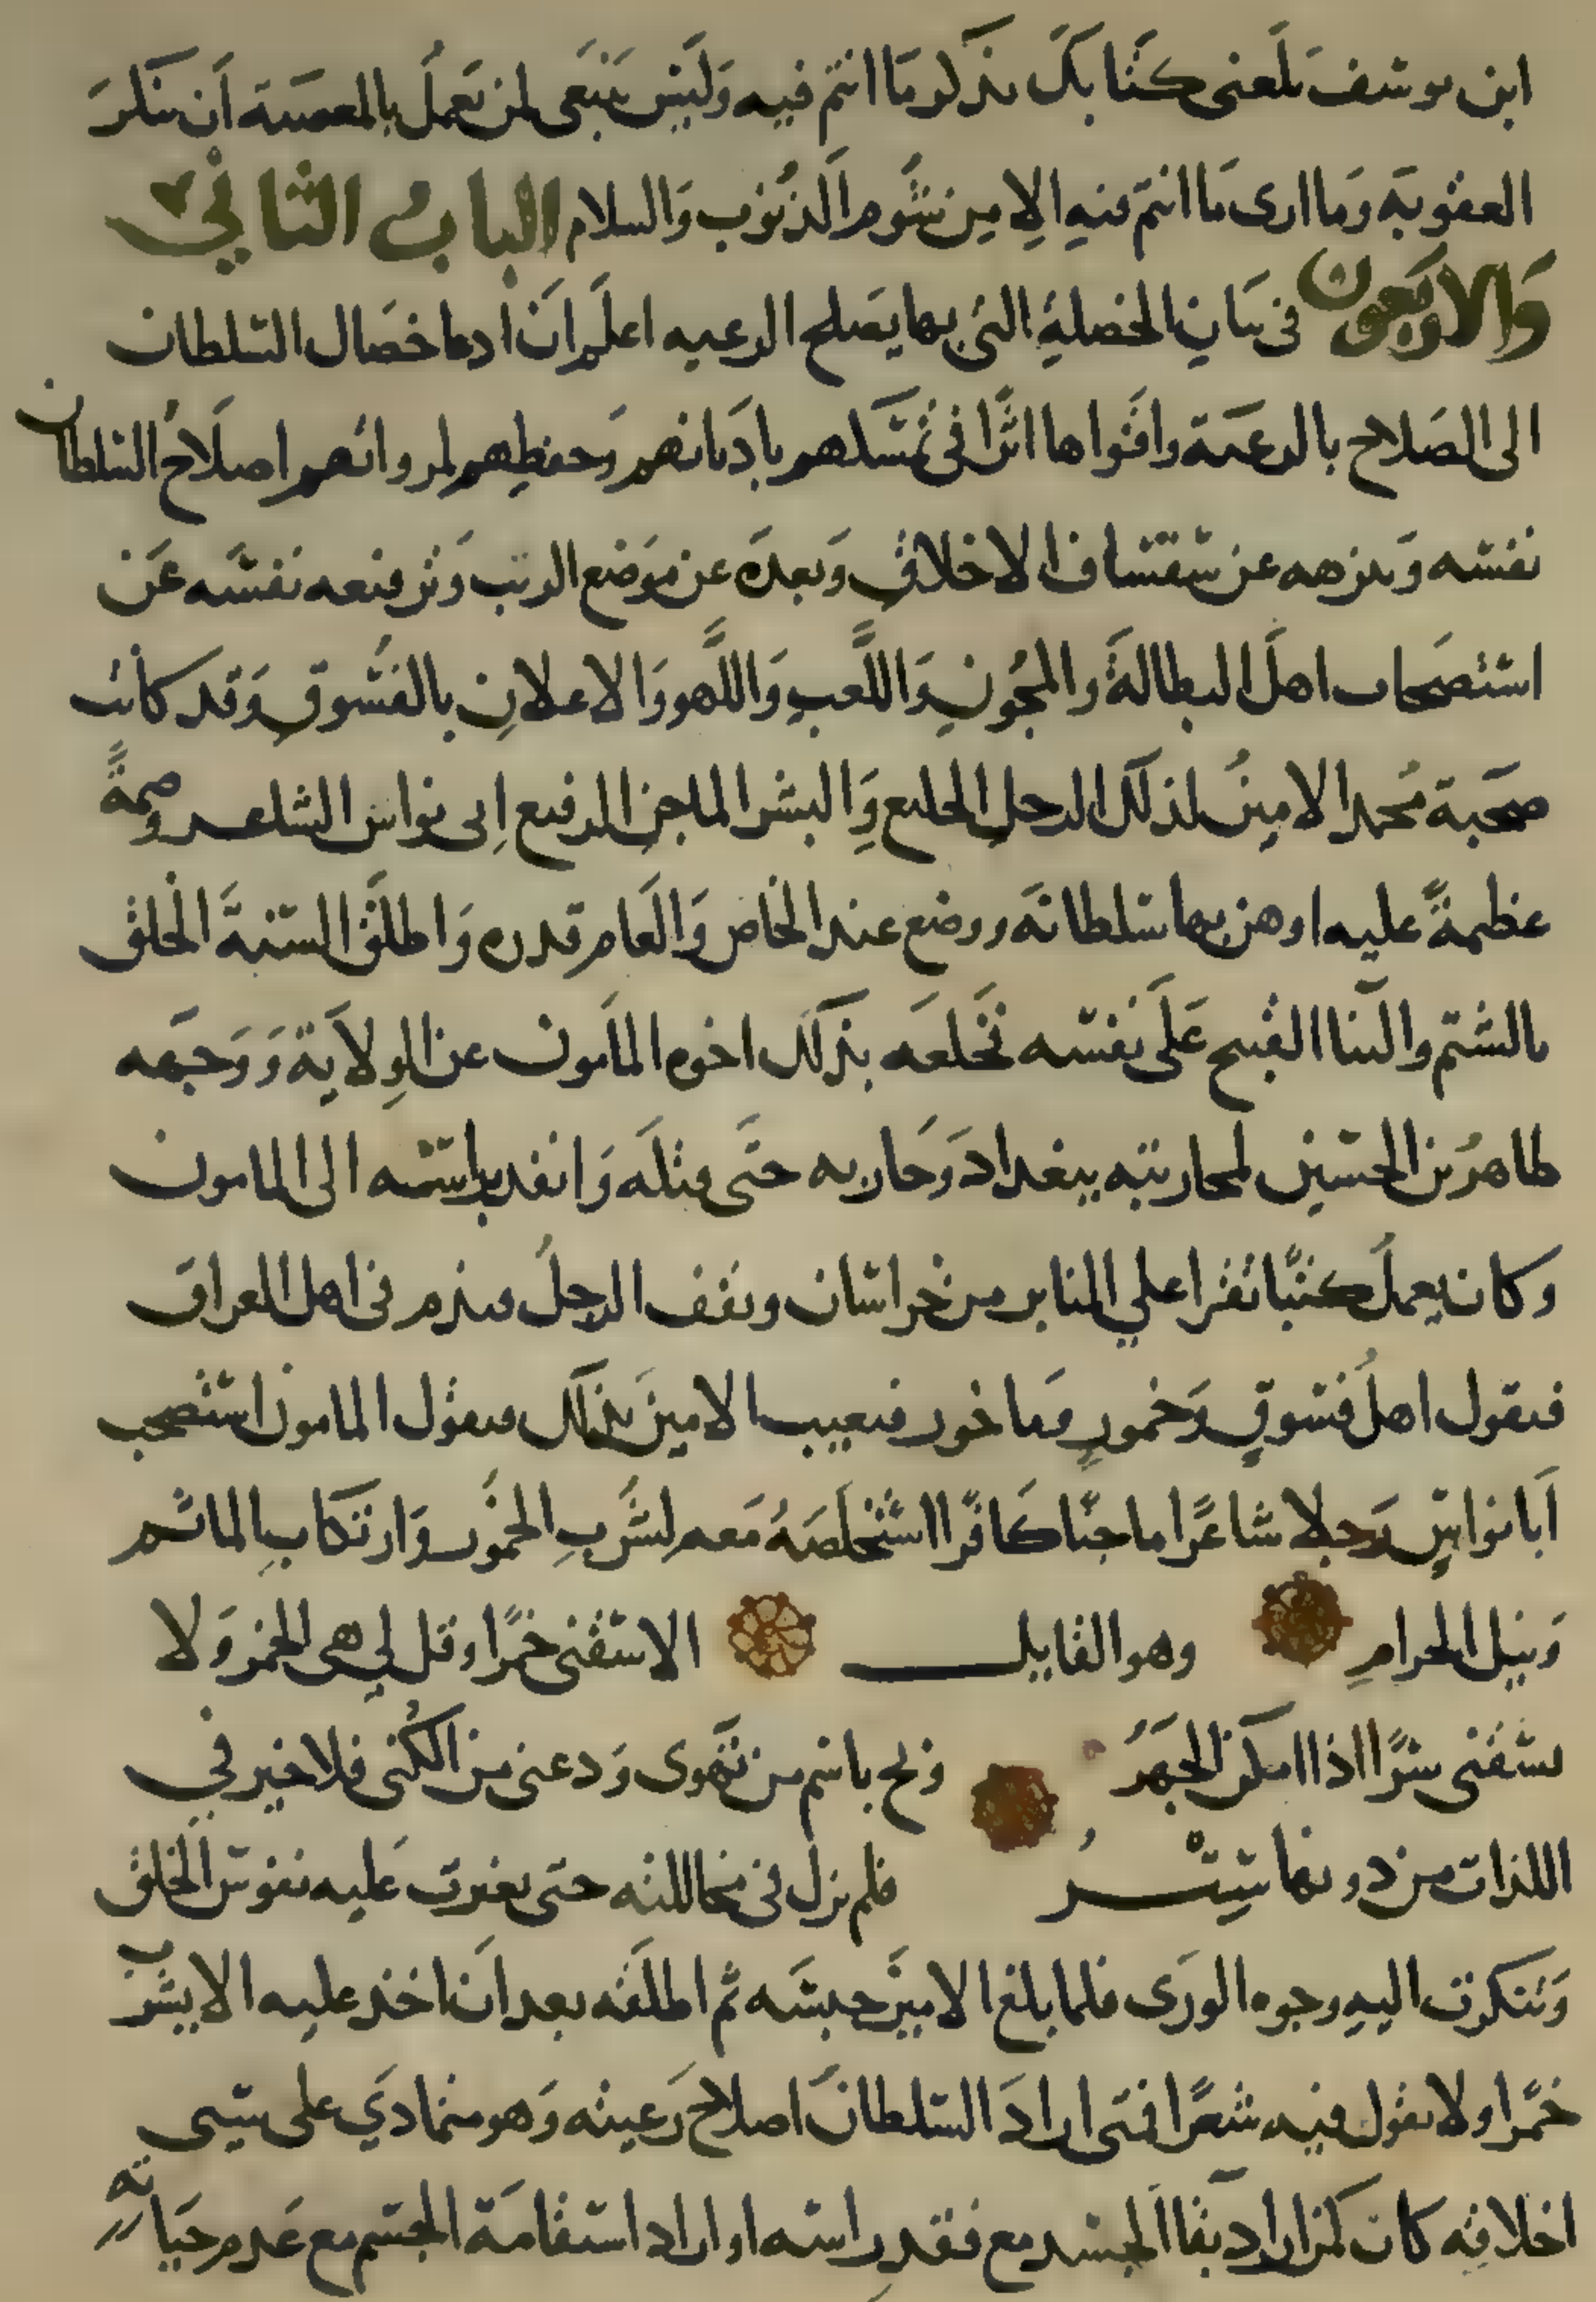 ابن يوسف بلغنى كتابك بذكر ما انتم فيه وليس ينبغى لمن يعمل بالمعصية ان ينكر
العقوبة وما ارى ما انتم فيه الا من شوم الذنوب والسلام الباب الثاني
والاربعون فى بيان الخصلة التى بها يصلح الرعيه اعلم ان ادعا خصال السلطان
الى الصلاح بالرعية واقواها اثرا فى تمسكهم باديانهم وحفظهم لمرواتهم اصلاح السلطان
نفسه وتنزهه عن سفساف الاخلاق وبعده عن موضع الريب وترفيعه نفسه عن
استصحاب اهل البطالة والمجون واللعب واللهو والاعلان بالفسوق وقد كانت
صحبة محمد الامين لذلك الرجل الخليع والبشر الماجن الرفيع ابى نواس الشاعر وصمة
عظيمة عليه اوهن بها سلطانه ووضع عند الخاص والعام قدره واطلق السنة الخلق
بالشتم والثنا القبيح على نفسه فخلعه بذلك اخوه المامون عن الولاية ووجه
طاهر بن الحسين لمحاربته ببغداد وحاربه حتى قتله وانفد براسه الى المامون
وكان يعمل كتبا تقرا علي المنابر من خراسان ويقف الرجل فيذم فى اهل العراق
فيقول اهل فسوق وخمور وماخور فيعيب الامين بذلك فيقول المامون استصحب
ابا نواس رجلا شاعرا ماجنا كافرا استخلصه معه لشرب الخمور وارتكاب الماثم
ونيل الحرام وهو القايل الا اسقنى خمرا وقل لي هى الخمر ولا
تسقنى سرا اذا امكن الجهر وبح باسم من تهوى ودعنى من الكنى فلا خير في
اللذات من دونها ستر فلم يزل فى مخاللته حتى تغيرت عليه نفوس الخلق
وتنكرت اليه وجوه الورى فلما بلغ الامين حبسه ثم اطلقه بعد ان اخذ عليه الا يشرب
خمرا ولا يقول فيه شعرا فمتى اراد السلطان اصلاح رعيته وهو متمادي على سيى
اخلاقه كان كمن اراد بقا الجسد مع فقد راسه او اراد استقامة الجسم مع عدم حياته